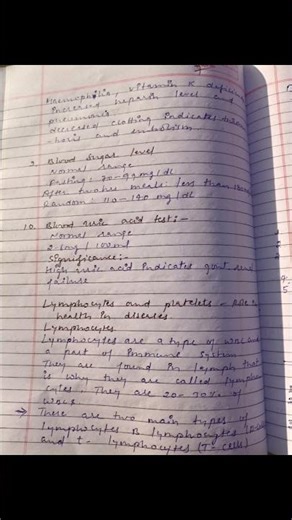 Haemophilia, vitamin K
Increased heparin level and
pneumonia
decreased clotting indicates
and embolism
9. Blood sugar level
Normal range
Fasting: 70-99 mg/dl
After twohrs meals: less than
Random: 110-140 mg/dl
10. Blood uric acid test:-
Normal range
2-6mg/100ml
Significance:-
High uric acid indicates gout
failure
Lymphocytes and platelets -
health in diseases
Lymphocytes
Lymphocytes are a type of WBC and
a part of Immune System
They are found in lymph that
is why they are called
cytes. They are 20-30% of
WBCs
→ There are two main types of
lymphocytes B lymphocytes
and t- lymphocytes (T-cells)